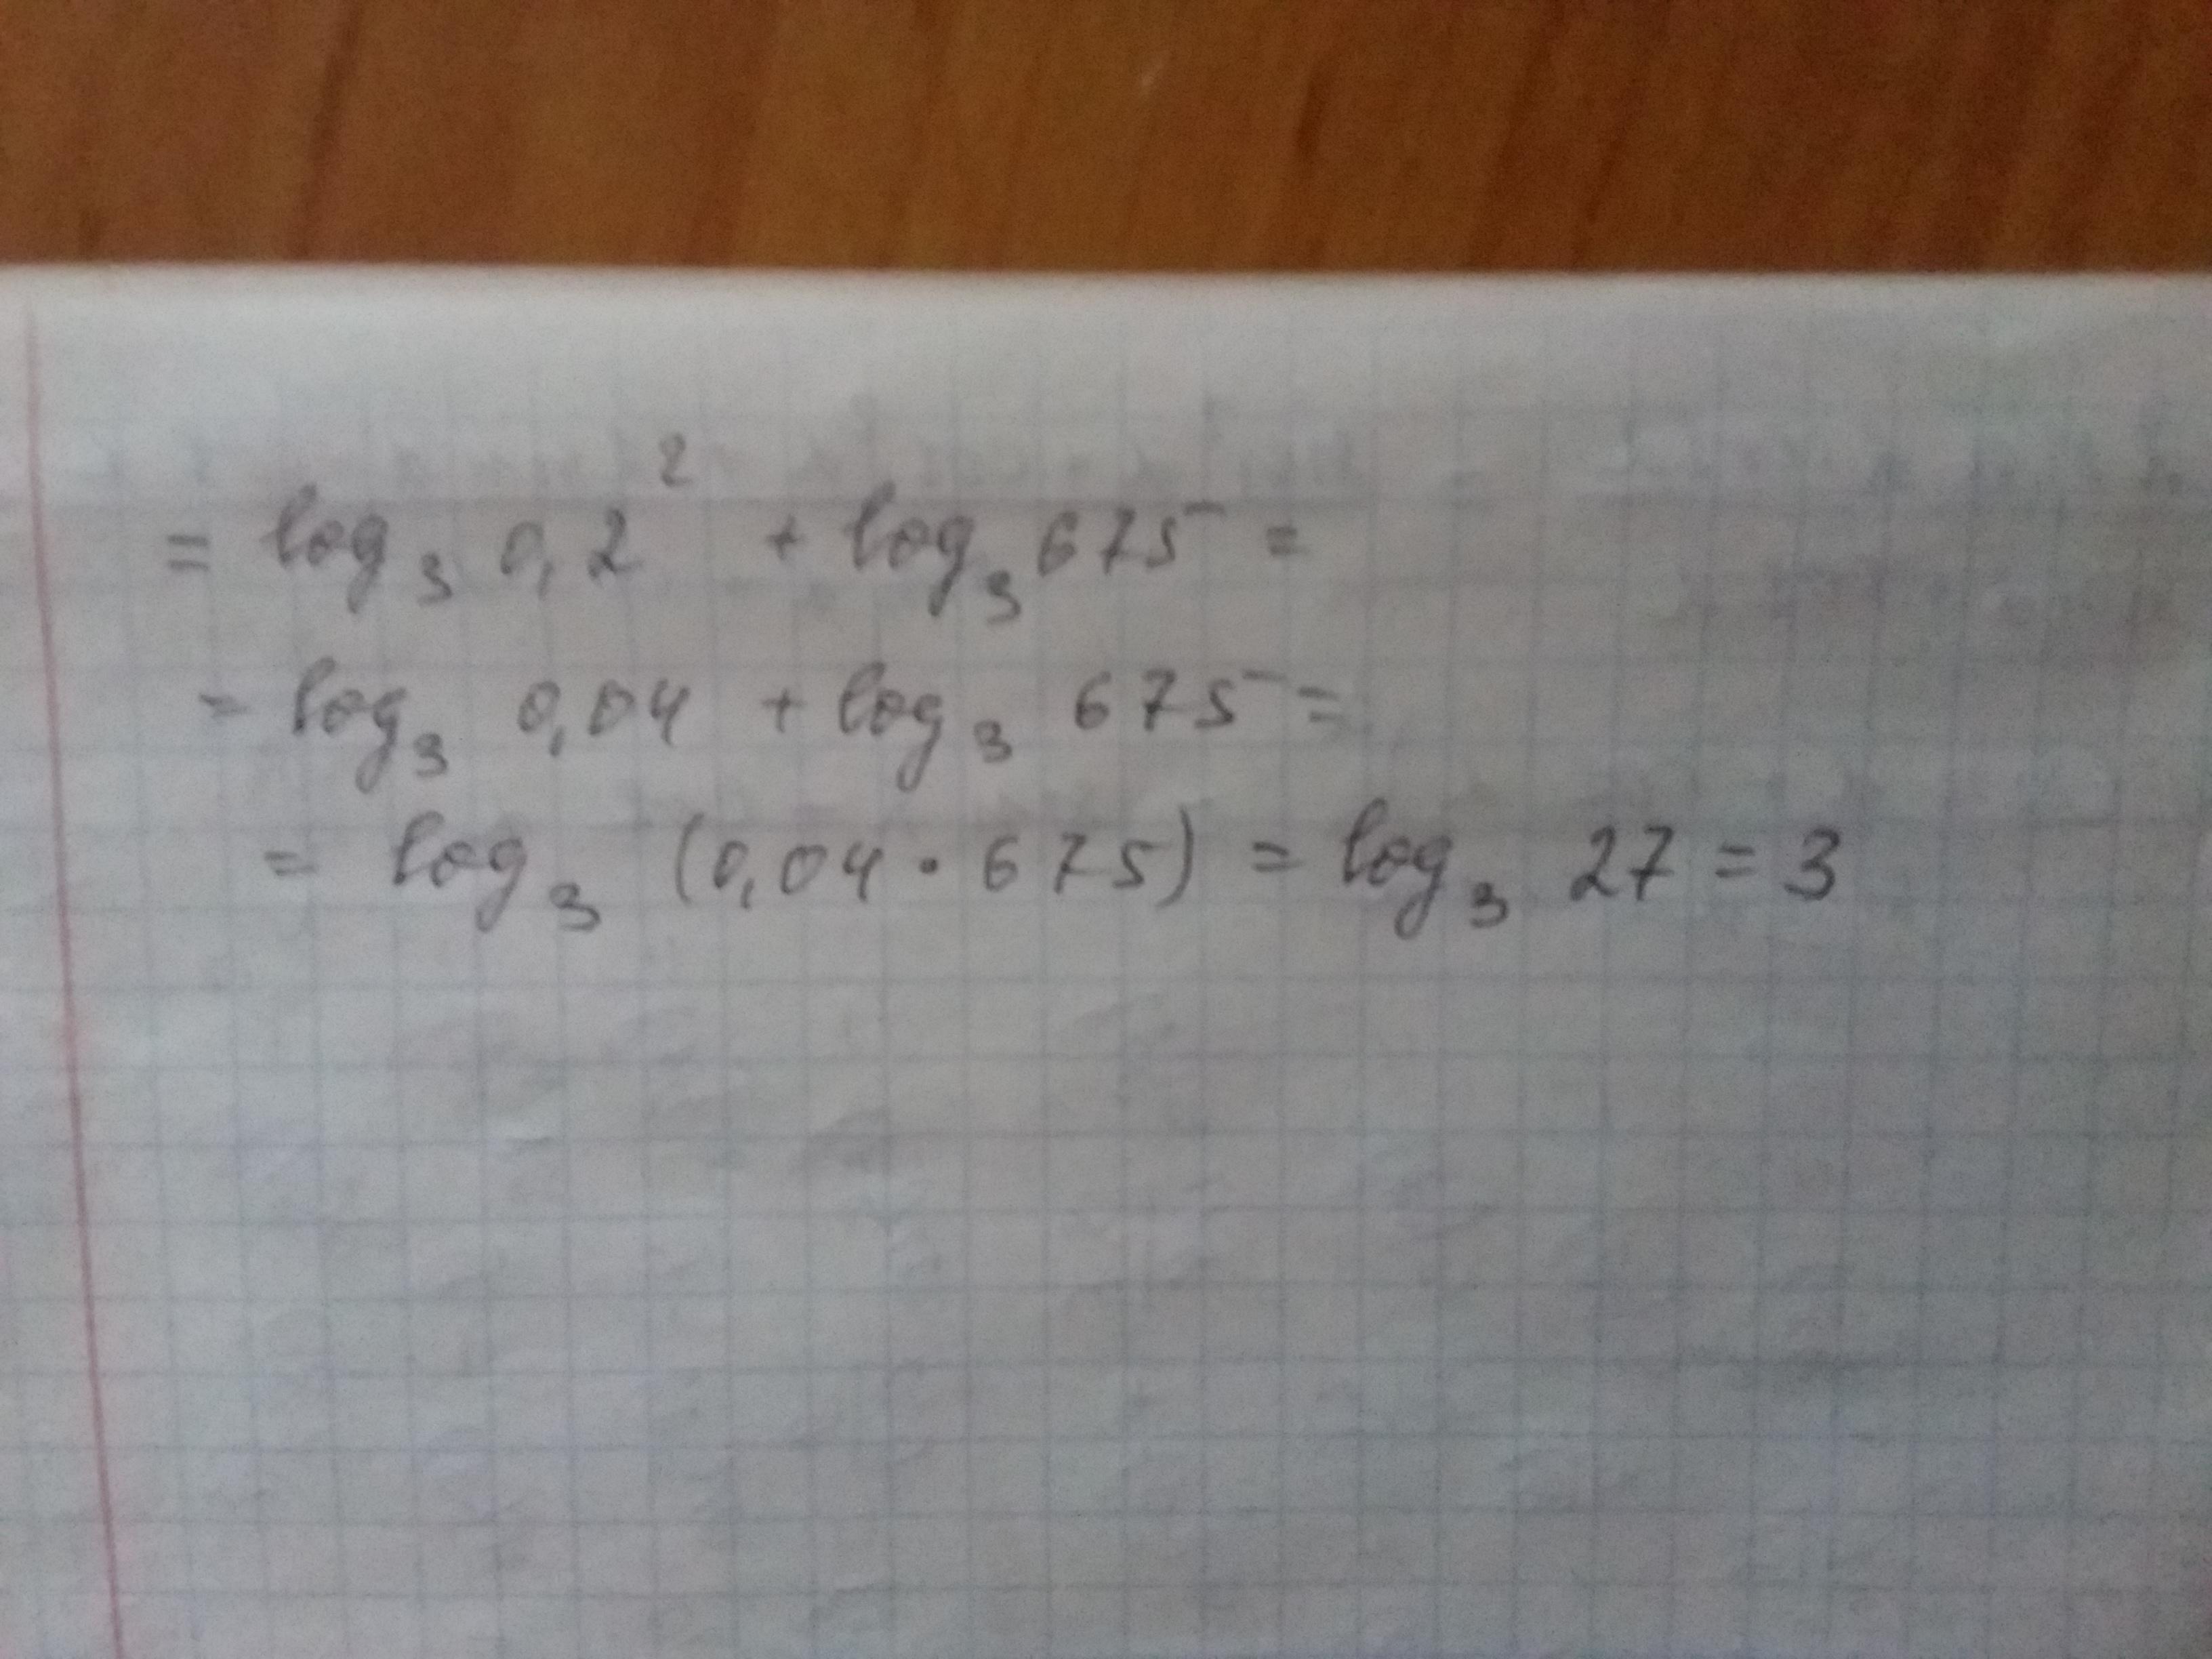 = log₃ 0,2² + log₃ 675 =
= log₃ 0,04 + log₃ 675 =
= log₃ (0,04 · 675) = log₃ 27 = 3